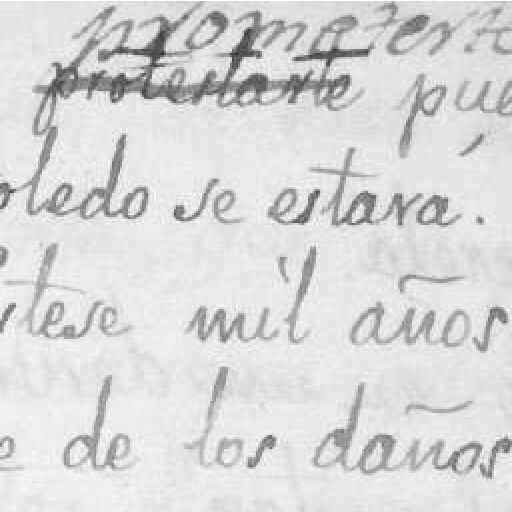 prometerte
protestarte pue
oledo se estara.
itese mil años
e de los daños